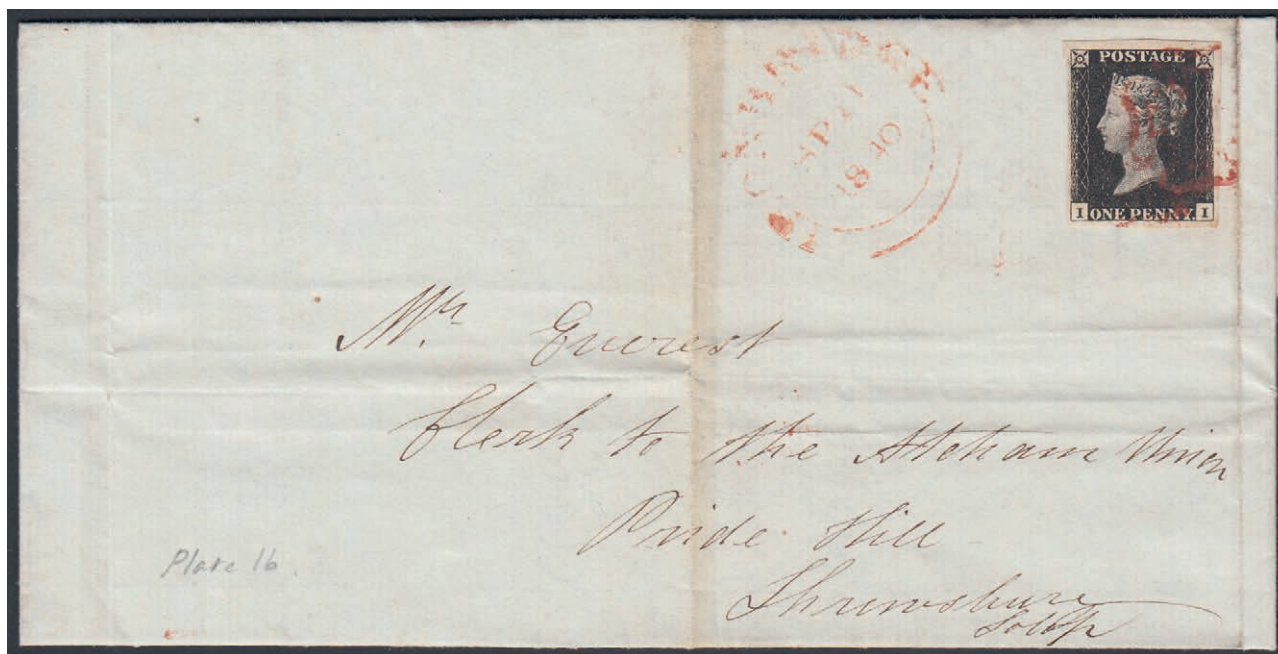 POSTAGE
I ONE PENNY. I
SP
1840
Mr. Everest
Clerk to the Atcham Union
Pride Hill
Shrewsbury
Salop
Plate 1b.